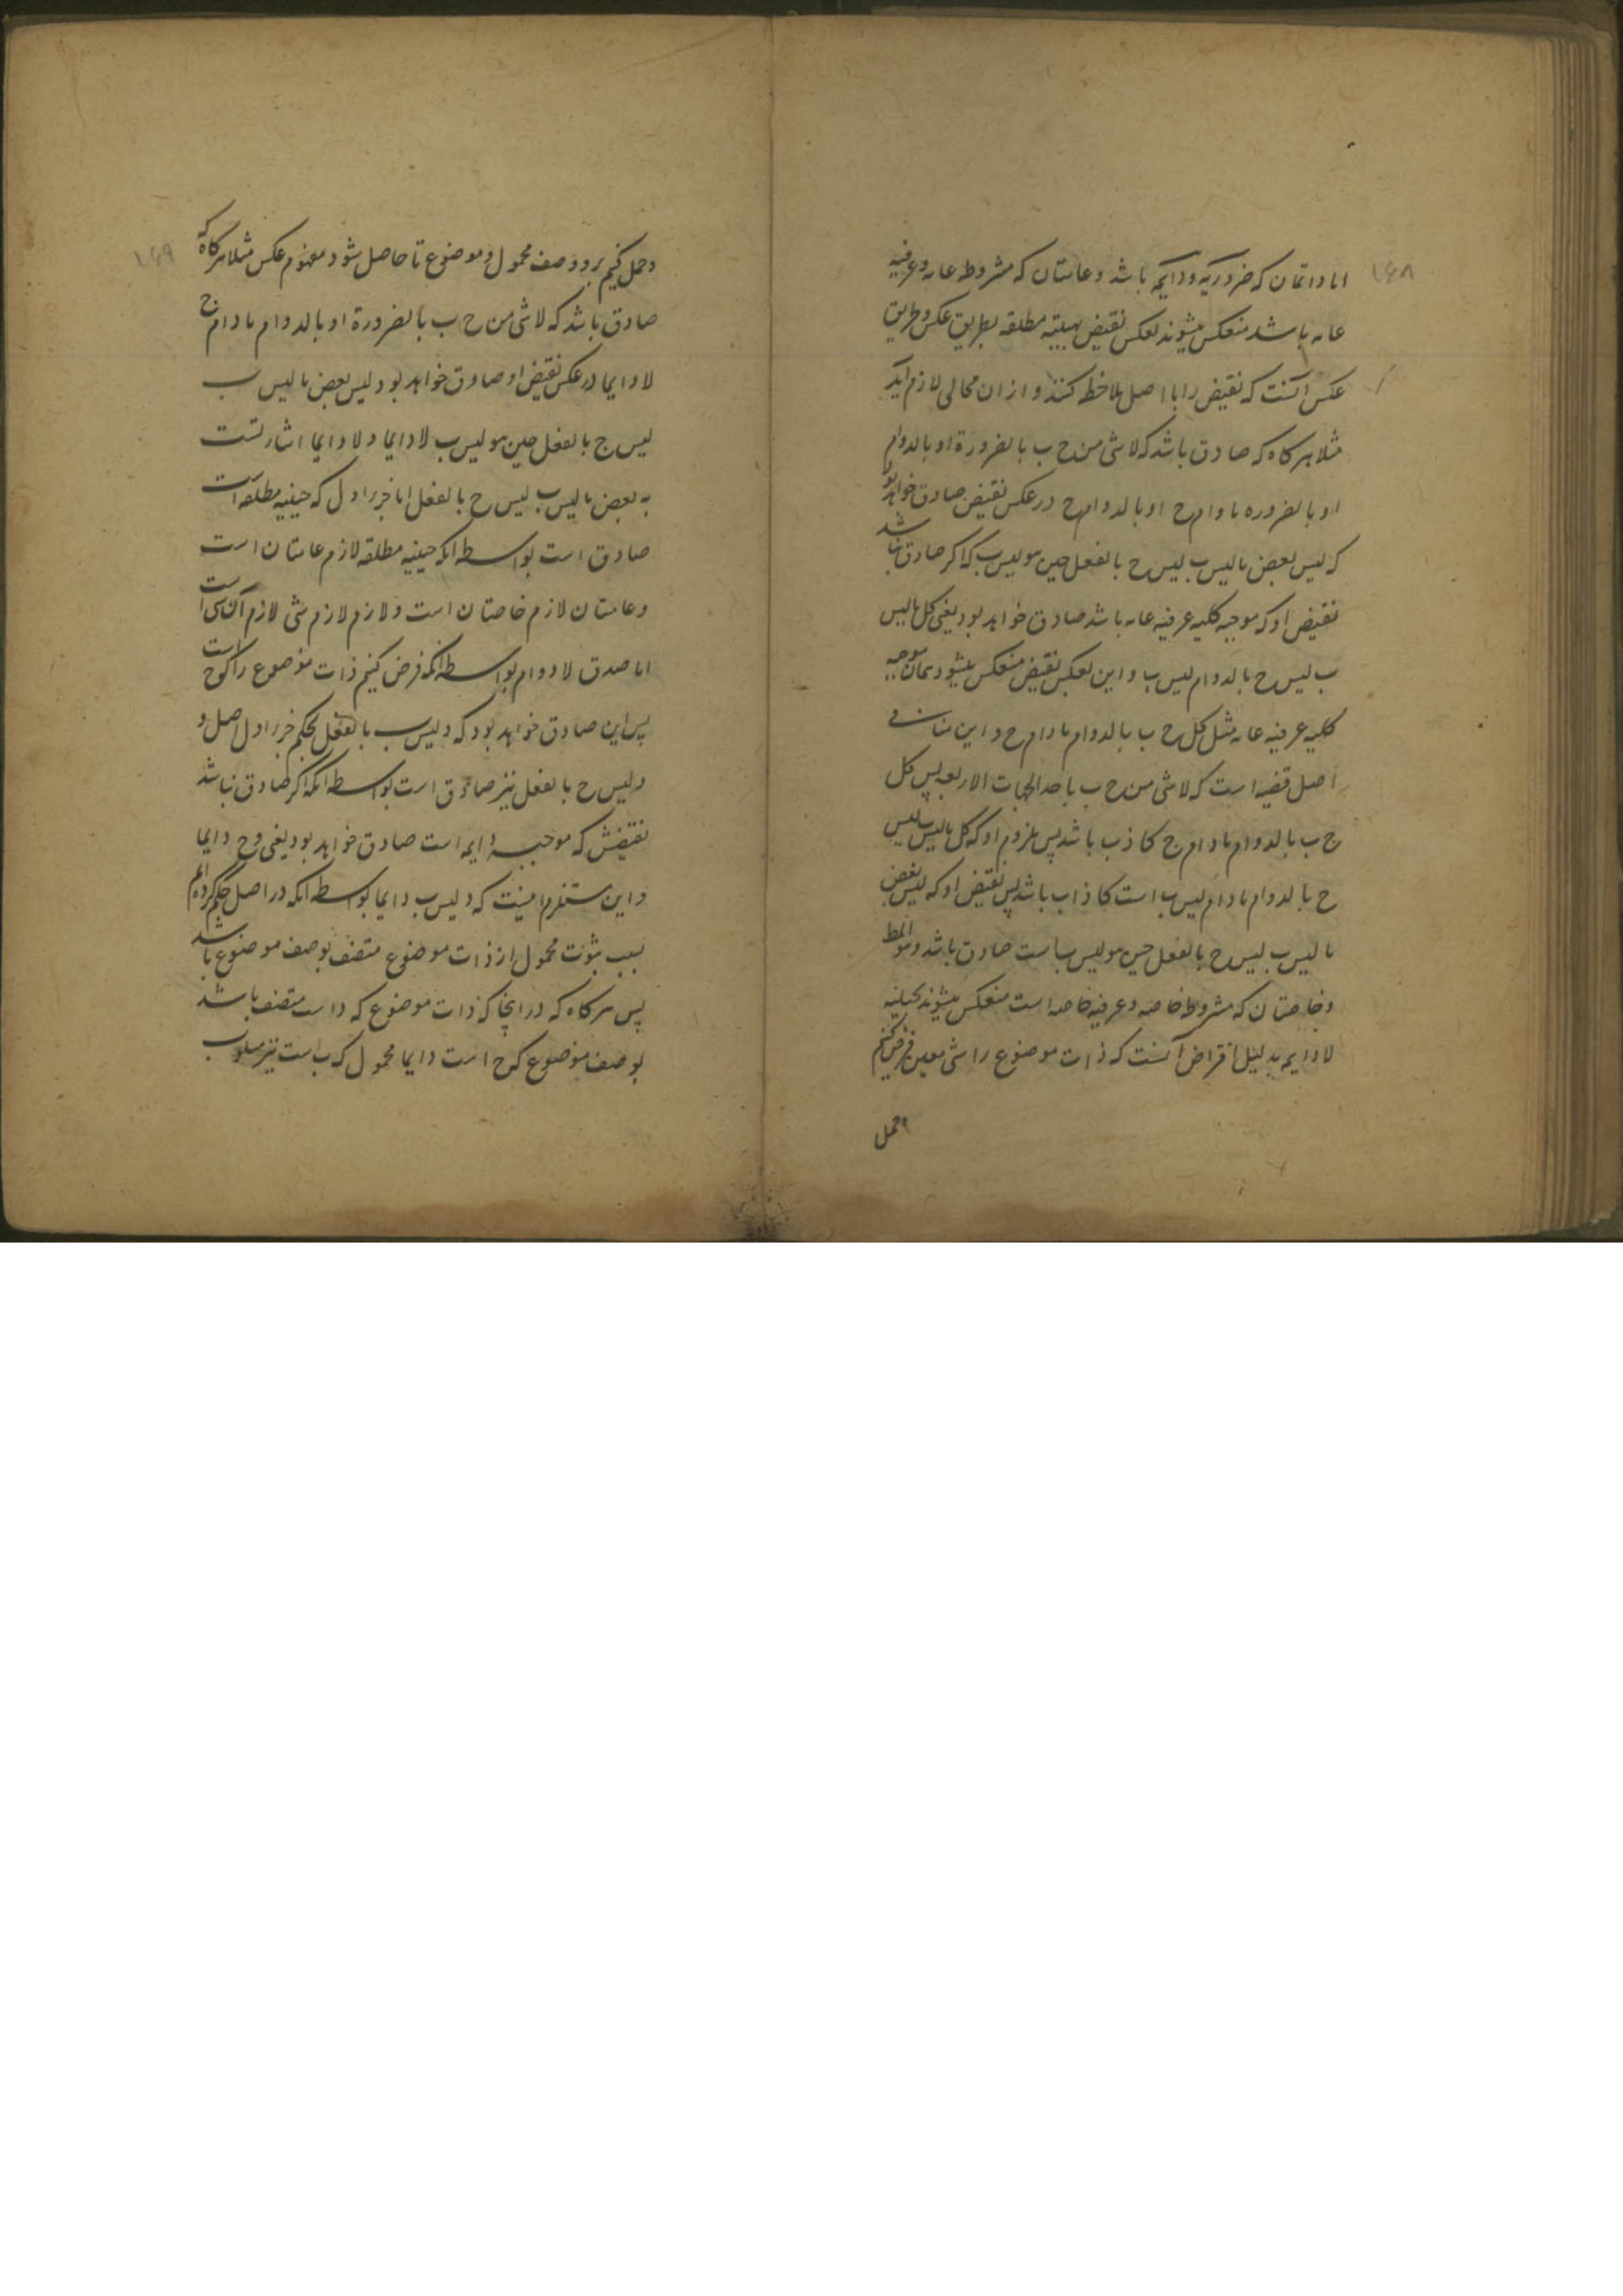 ۱۶۸
اما دائمتان که ضروریه و دایمه باشد و عامتان که مشروطه عامه و عرفیه
عامه باشد منعکس میشوند بعکس نقیض بحینیه مطلقه بطریق عکس و طریق
عکس آنست که نقیض را با اصل ملاحظه کنند و از ان محالی لازم آید
مثلا هر کاه که صادق باشد که لا شی من ح ب بالضرورة او بالدوام
او بالضروره مادام ح او بالدوام ح در عکس نقیض صادق خواهد بود
که لیس بعض ما لیس ب لیس ح بالفعل حین هو لیس ب که اکر صادق نباشد
نقیض او که موجبه کلیه عرفیه عامه باشد صادق خواهد بود یعنی کل ما لیس
ب لیس ح بالدوام لیس ب و این بعکس نقیض منعکس میشود بهمان موجبه
کلیه عرفیه عامه مثل کل ح ب بالدوام مادام ح و این منافی
اصل قضیه است که لا شی من ح ب باحد الجهات الاربعه پس کل
ح ب بالدوام مادام ج کاذب باشد پس ملزوم او که کل ما لیس ب لیس
ح بالدوام مادام لیس ب است کاذب باشد پس نقیض او که لیس بعض
ما لیس ب لیس ح بالفعل حین هو لیس ب است صادق باشد و هو المط
و خاصتان که مشروطه خاصه و عرفیه خاصه است منعکس میشوند بحینیه
لا دایمه بدلیل افتراض آنست که ذات موضوع را شی معین فرض کنیم
و حمل
۱۶۹
و حمل کنیم برو وصف محمول و موضوع تا حاصل شود مفهوم عکس مثلا هر کاه که
صادق باشد که لا شی من ح ب بالضرورة او بالدوام مادام ج
لا دایما در عکس نقیض او صادق خواهد بود لیس بعض ما لیس ب
لیس ج بالفعل حین هو لیس ب لا دایما و لا دایما اشارتست
به بعض ما لیس ب لیس ح بالفعل اما جزء اول که حینیه مطلقه است
صادق است بواسطه انکه حینیه مطلقه لازم عامتان است
و عامتان لازم خاصتان است و لازم لازم شی لازم آن شی است
اما صدق لا دوام بواسطه انکه فرض کنیم ذات موضوع را که ح است
پس این صادق خواهد بود که د لیس ب بالفعل بحکم جزء اول اصل و
د لیس ح بالفعل نیز صادق است بواسطه انکه اکر صادق نباشد
نقیضش که موجبه دایمه است صادق خواهد بود یعنی د ح دایما
و این مستلزم اینست که د لیس ب دایما بواسطه انکه در اصل حکم کرده ایم
بسلب ثبوت محمول از ذات موضوع متصف بوصف موضوع باشد
پس هر کاه که در اینجا که ذات موضوع که د است متصف باشد
بوصف موضوع که ح است دایما محمول که ب است نیز مسلوب